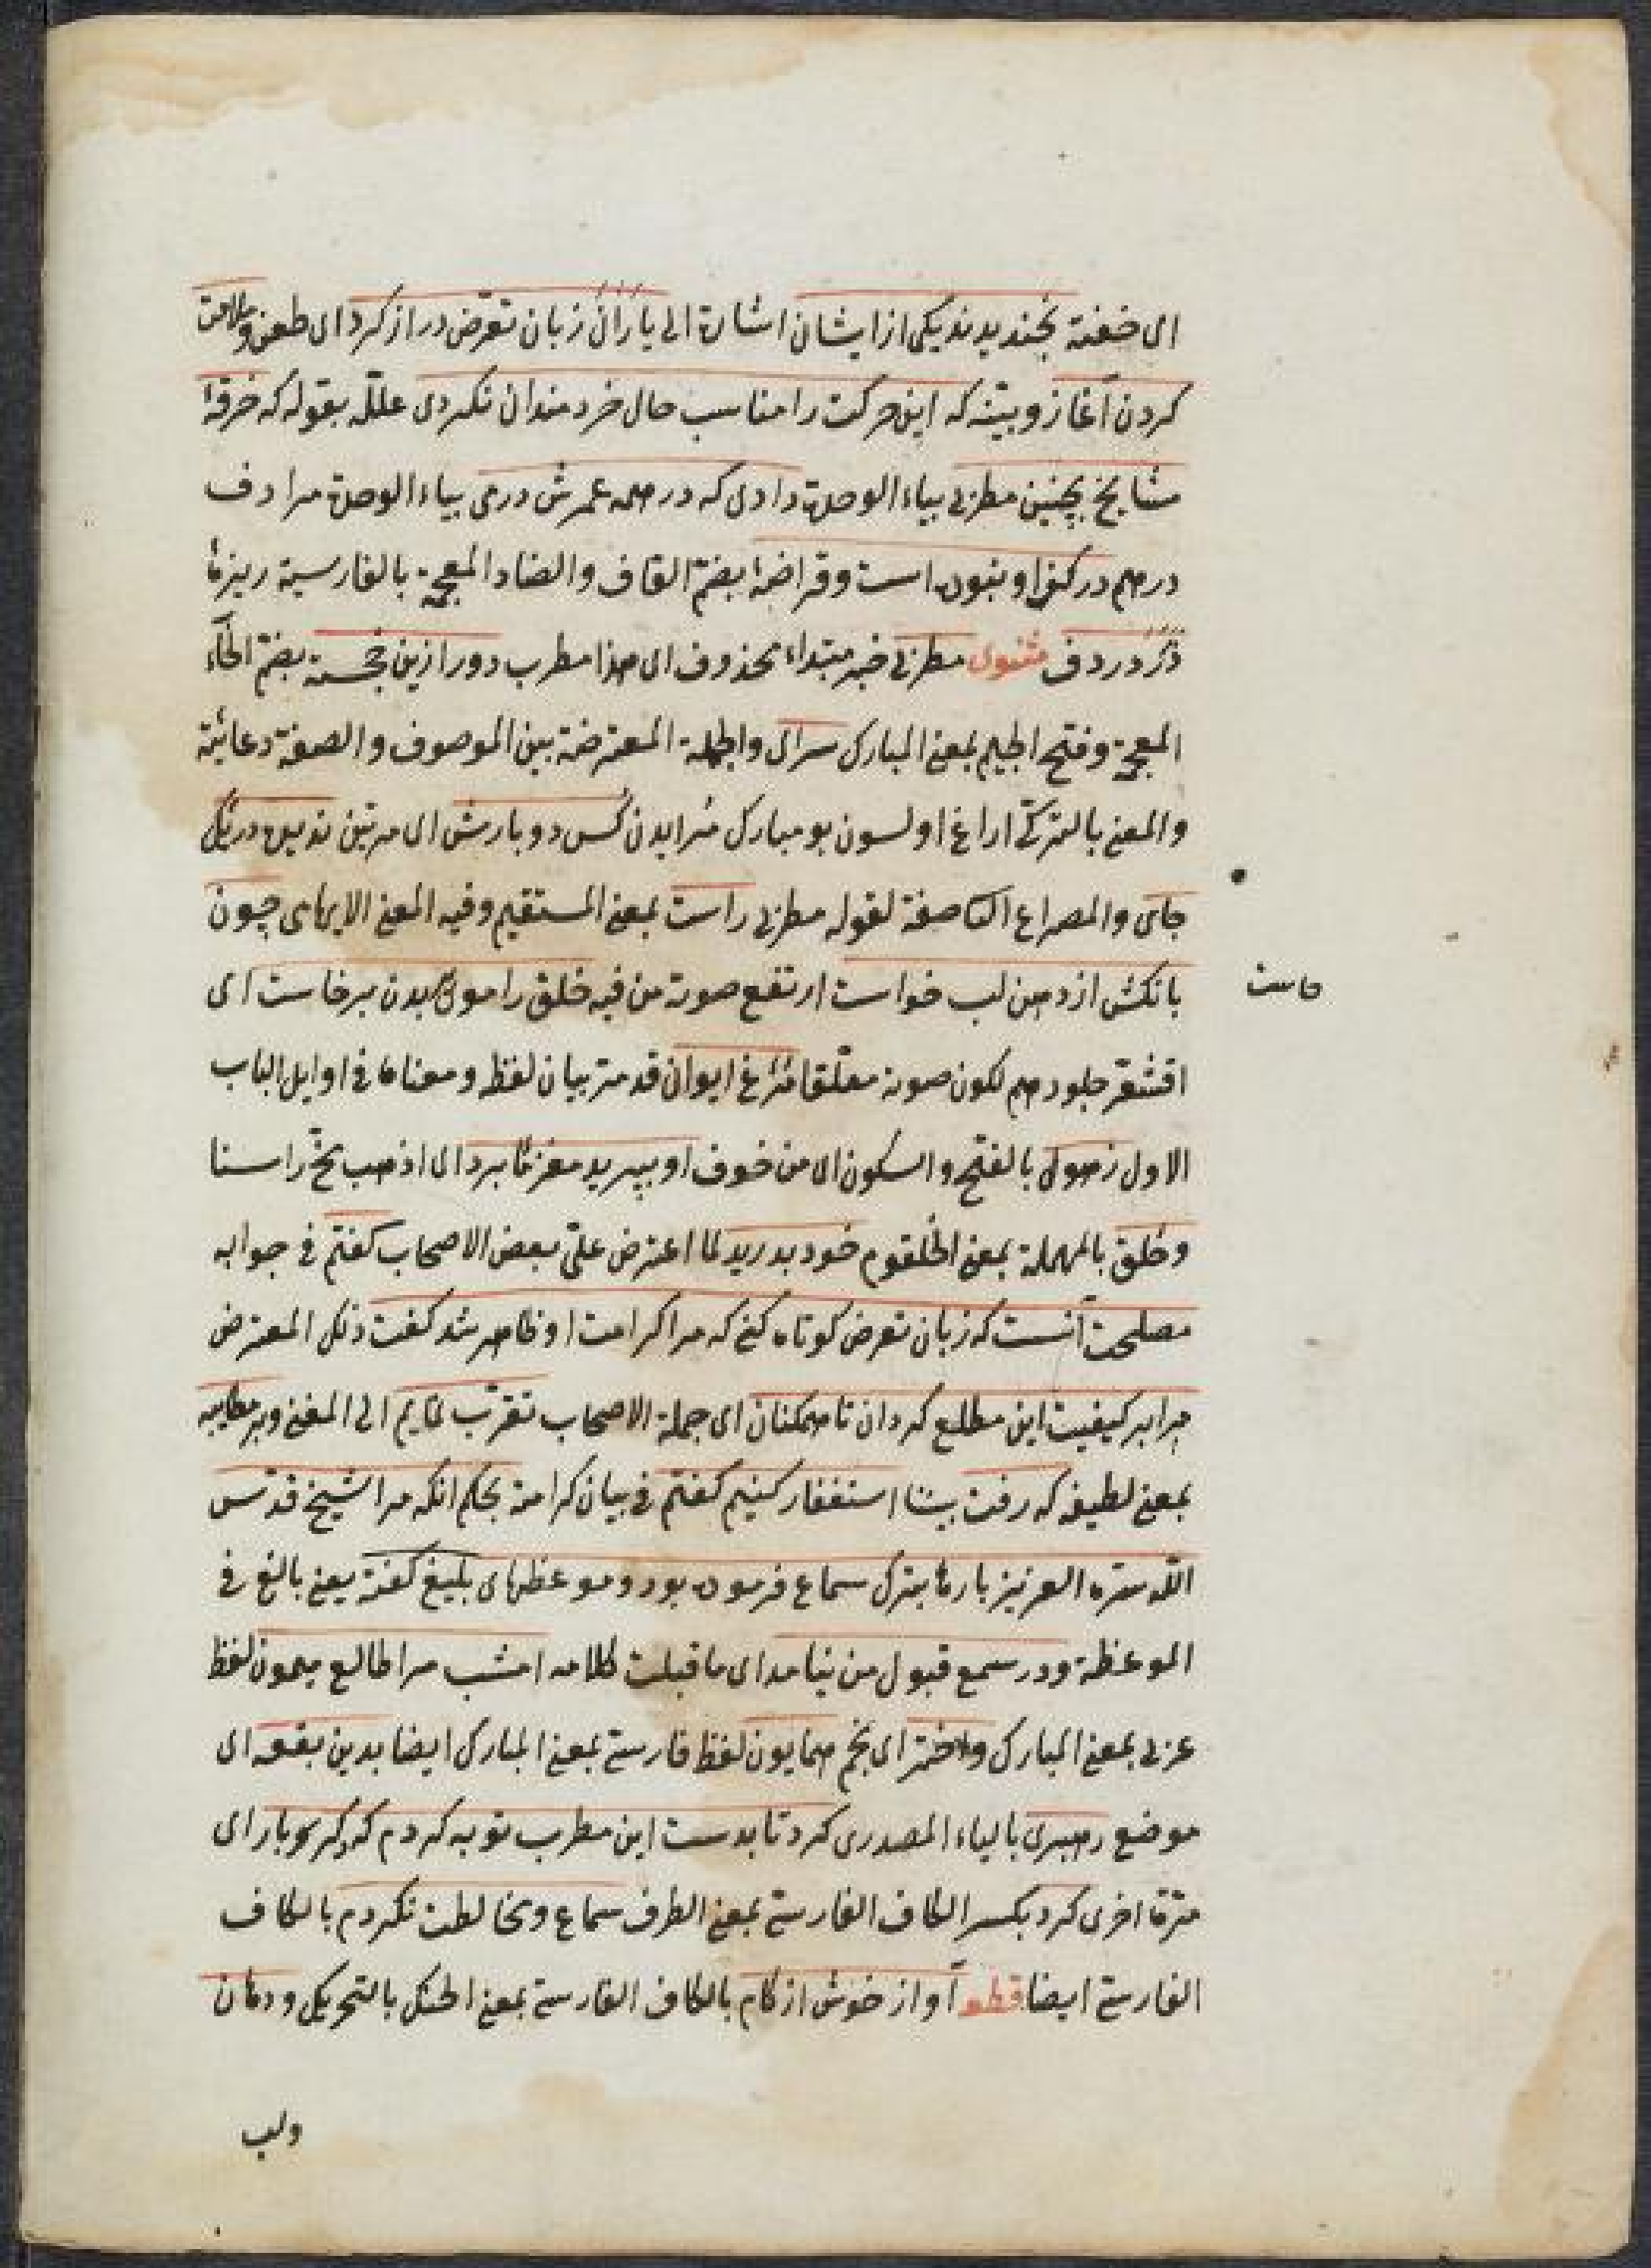 ای خفیة بخندیدند یکی از ایشان اشارة الی یاران زبان تعرض دراز کرد ای طعن وملامت
کردن آغاز وبینه که این حرکت را مناسب حال خردمندان نکردی علله بقوله که خرقهٔ
مشایخ بچنین مطربی بیاء الوحدة دادی که در همه عمرش درمی بیاء الوحدة مرادف
درهم در کف او نبوده است وقراضهٔ بضم القاف والضاد المعجمة بالفارسیة ریزهٔ
زر در دف مثنوی مطربی خبر مبتداء محذوف ای هذا مطرب دور ازین خجسته بضم الخاء
المعجمة وفتح الجیم بمعنی المبارک سرای والجملة المعترضة بین الموصوف والصفة دعائیة
والمعنی بالترکی اراغ اولسون بو مبارک سرایدن کس دوبارش ای مرتین ندیده در یک
جای والمصراع صفة لقوله مطربی راست بمعنی المستقیم وفیه المعنی الایهامی چون
بانکش از دهن لب خواست ارتفع صوته من فیه خلق را موی بر بدن برخاست ای
خاست
اقشعر جلودهم لکون صوته مغلقا مرغ ایوان قد مر بیان لفظه ومعناها فی اوایل الباب
الاول ز هول بالفتح والسکون ای من خوف او بپرید مغز ما ببرد ای اذهب مخ راسنا
وحلق بالمهملة بمعنی الحلقوم خود بدرید لما اعترض علی بعض الاصحاب کفتم فی جوابه
مصلحت آنست که زبان تعرض کوتاه کنی که مرا کرامت او ظاهر شد کفت ذلک المعترض
مرا بر کیفیت این مطلع کردان تا همکنان ای جملة الاصحاب تقرب نماییم الی المغنی وبر مطایبه
بمعنی لطیفه که رفت بیننا استغفار کنیم کفتم فی بیان کرامته بحکم آنکه مرا شیخ قدس
الله سره العزیز بارها بترک سماع فرموده بود وموعظهای بلیغ کفته یعنی بالغ فی
الموعظة ودر سمع قبول من نیامد ای ما قبلت کلامه امشب مرا طالع میمون لفظ
عربی بمعنی المبارک واختر ای نجم همایون لفظ فارسی بمعنی المبارک ایضا بدین بقعه ای
موضع رهبری بالیاء المصدری کرد تا بدست این مطرب توبه کردم که دکر بار ای
مرة اخری کرد بکسر الکاف الفارسی بمعنی الطرف سماع ومخالطت نکردم بالکاف
الفارسی ایضا قطعه آواز خوش از کام بالکاف الفارسی بمعنی الحنک بالتحریک ودهان
ولب